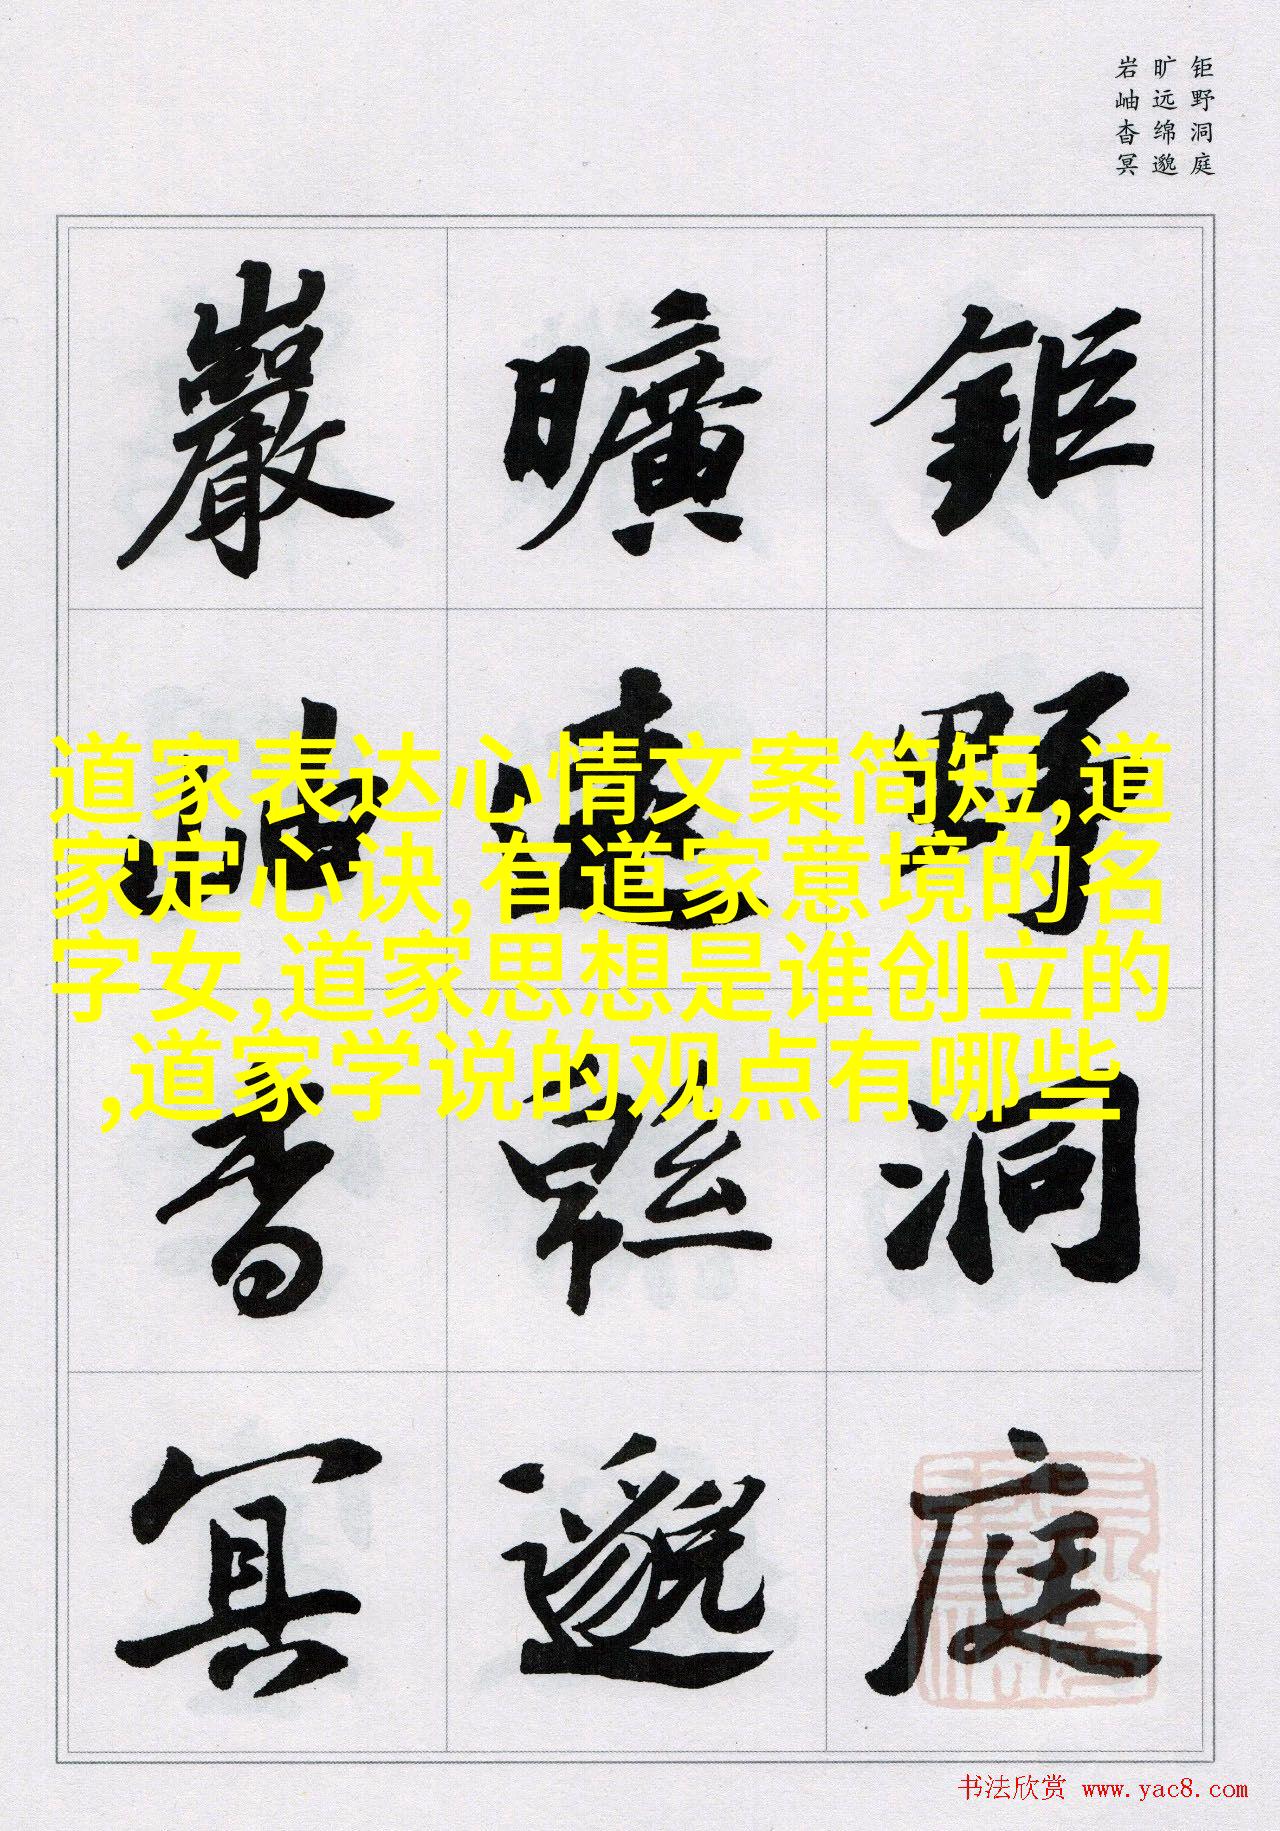 钜野洞庭
旷远绵邈
岩岫杳冥
鉅野洞庭
曠遠緜邈
巖岫杳冥
道家表达心情文案简短,道
家定心诀,有道家意境的名
字女,道家思想是谁创立的
,道家学说的观点有哪些
书法欣赏 www.yac8.com